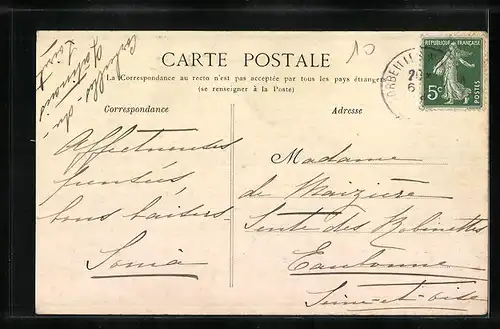 Corbeilles-du-
Gâtinais
Loiret
10
CARTE POSTALE
La Correspondance au recto n'est pas acceptée par tous les pays étrangers
(se renseigner à la Poste)
Correspondance
Adresse
CORBEILLE
20
6
RÉPUBLIQUE FRANÇAISE
5c
POSTES
Affectueuses
pensées,
bons baisers
Sonia
Madame
de Maizière
Sente des Robinettes
Eaubonne
Seine-et-Oise